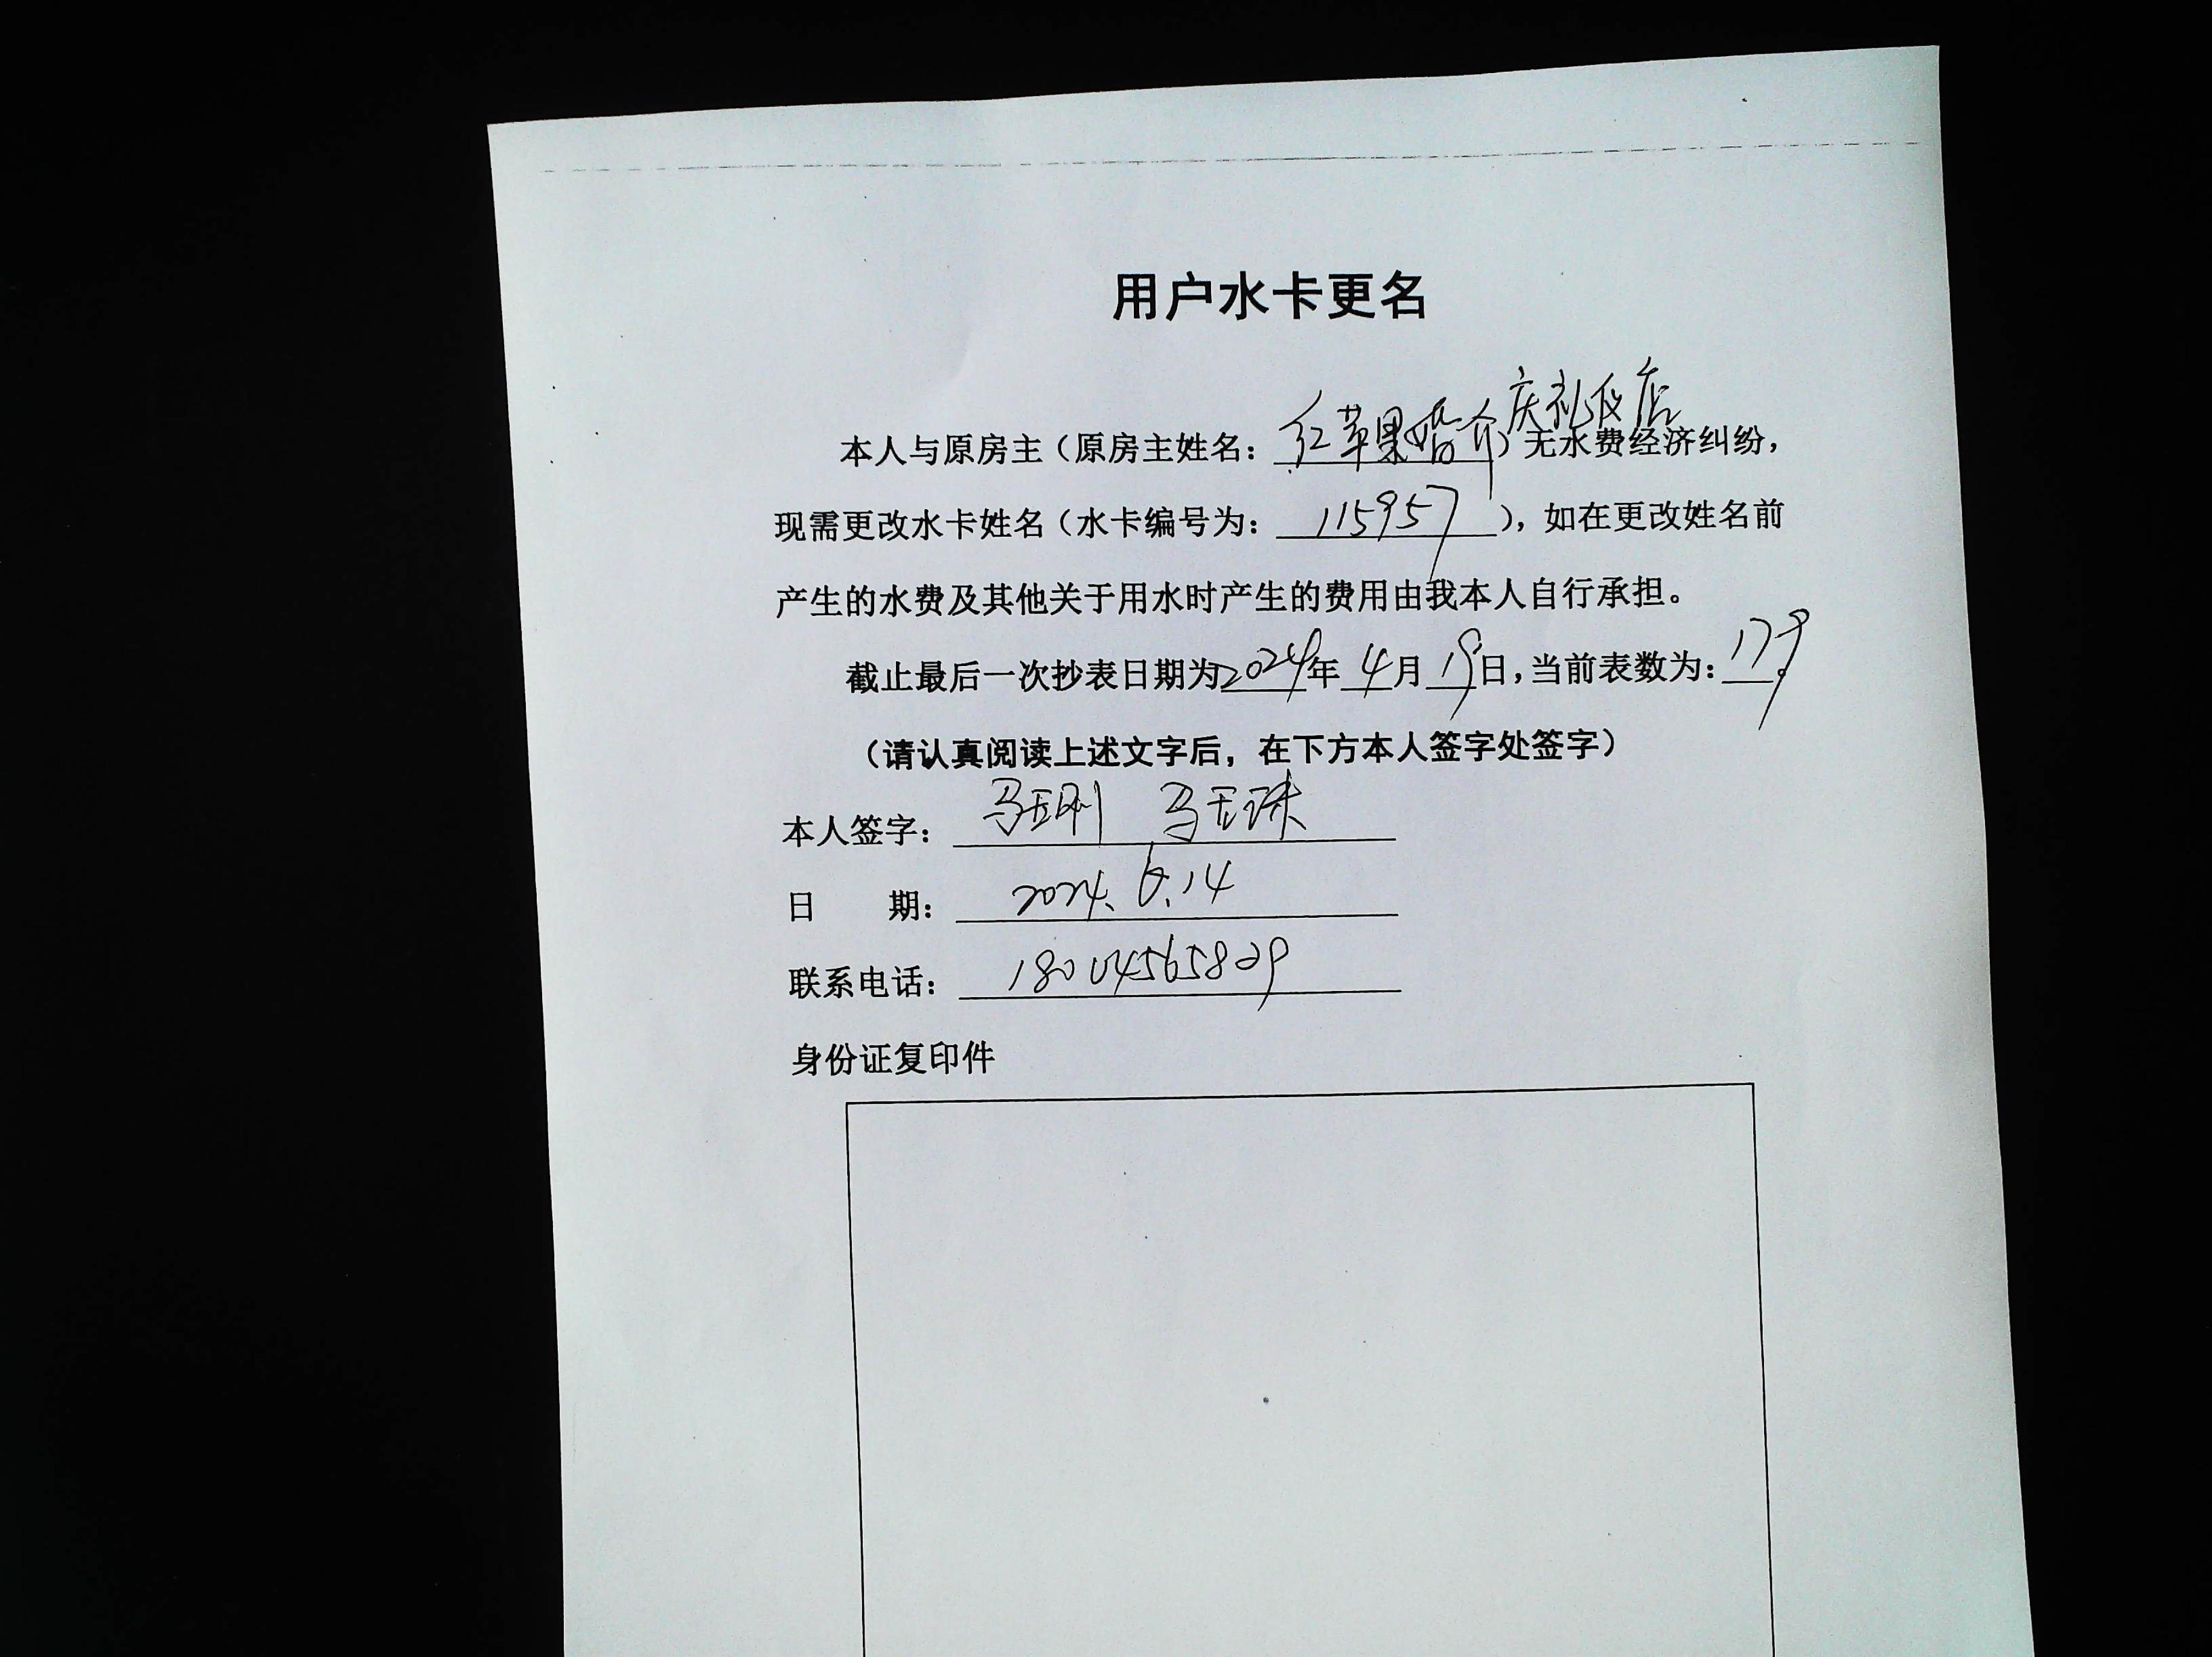 用户水卡更名
本人与原房主（原房主姓名：红苹果婚介庆礼仪店）无水费经济纠纷，
现需更改水卡姓名（水卡编号为：115957），如在更改姓名前
产生的水费及其他关于用水时产生的费用由我本人自行承担。
截止最后一次抄表日期为2024年4月19日，当前表数为：179。
（请认真阅读上述文字后，在下方本人签字处签字）
本人签字：马玉刚 马玉珠
日 期：2024.6.14
联系电话：18004565829
身份证复印件